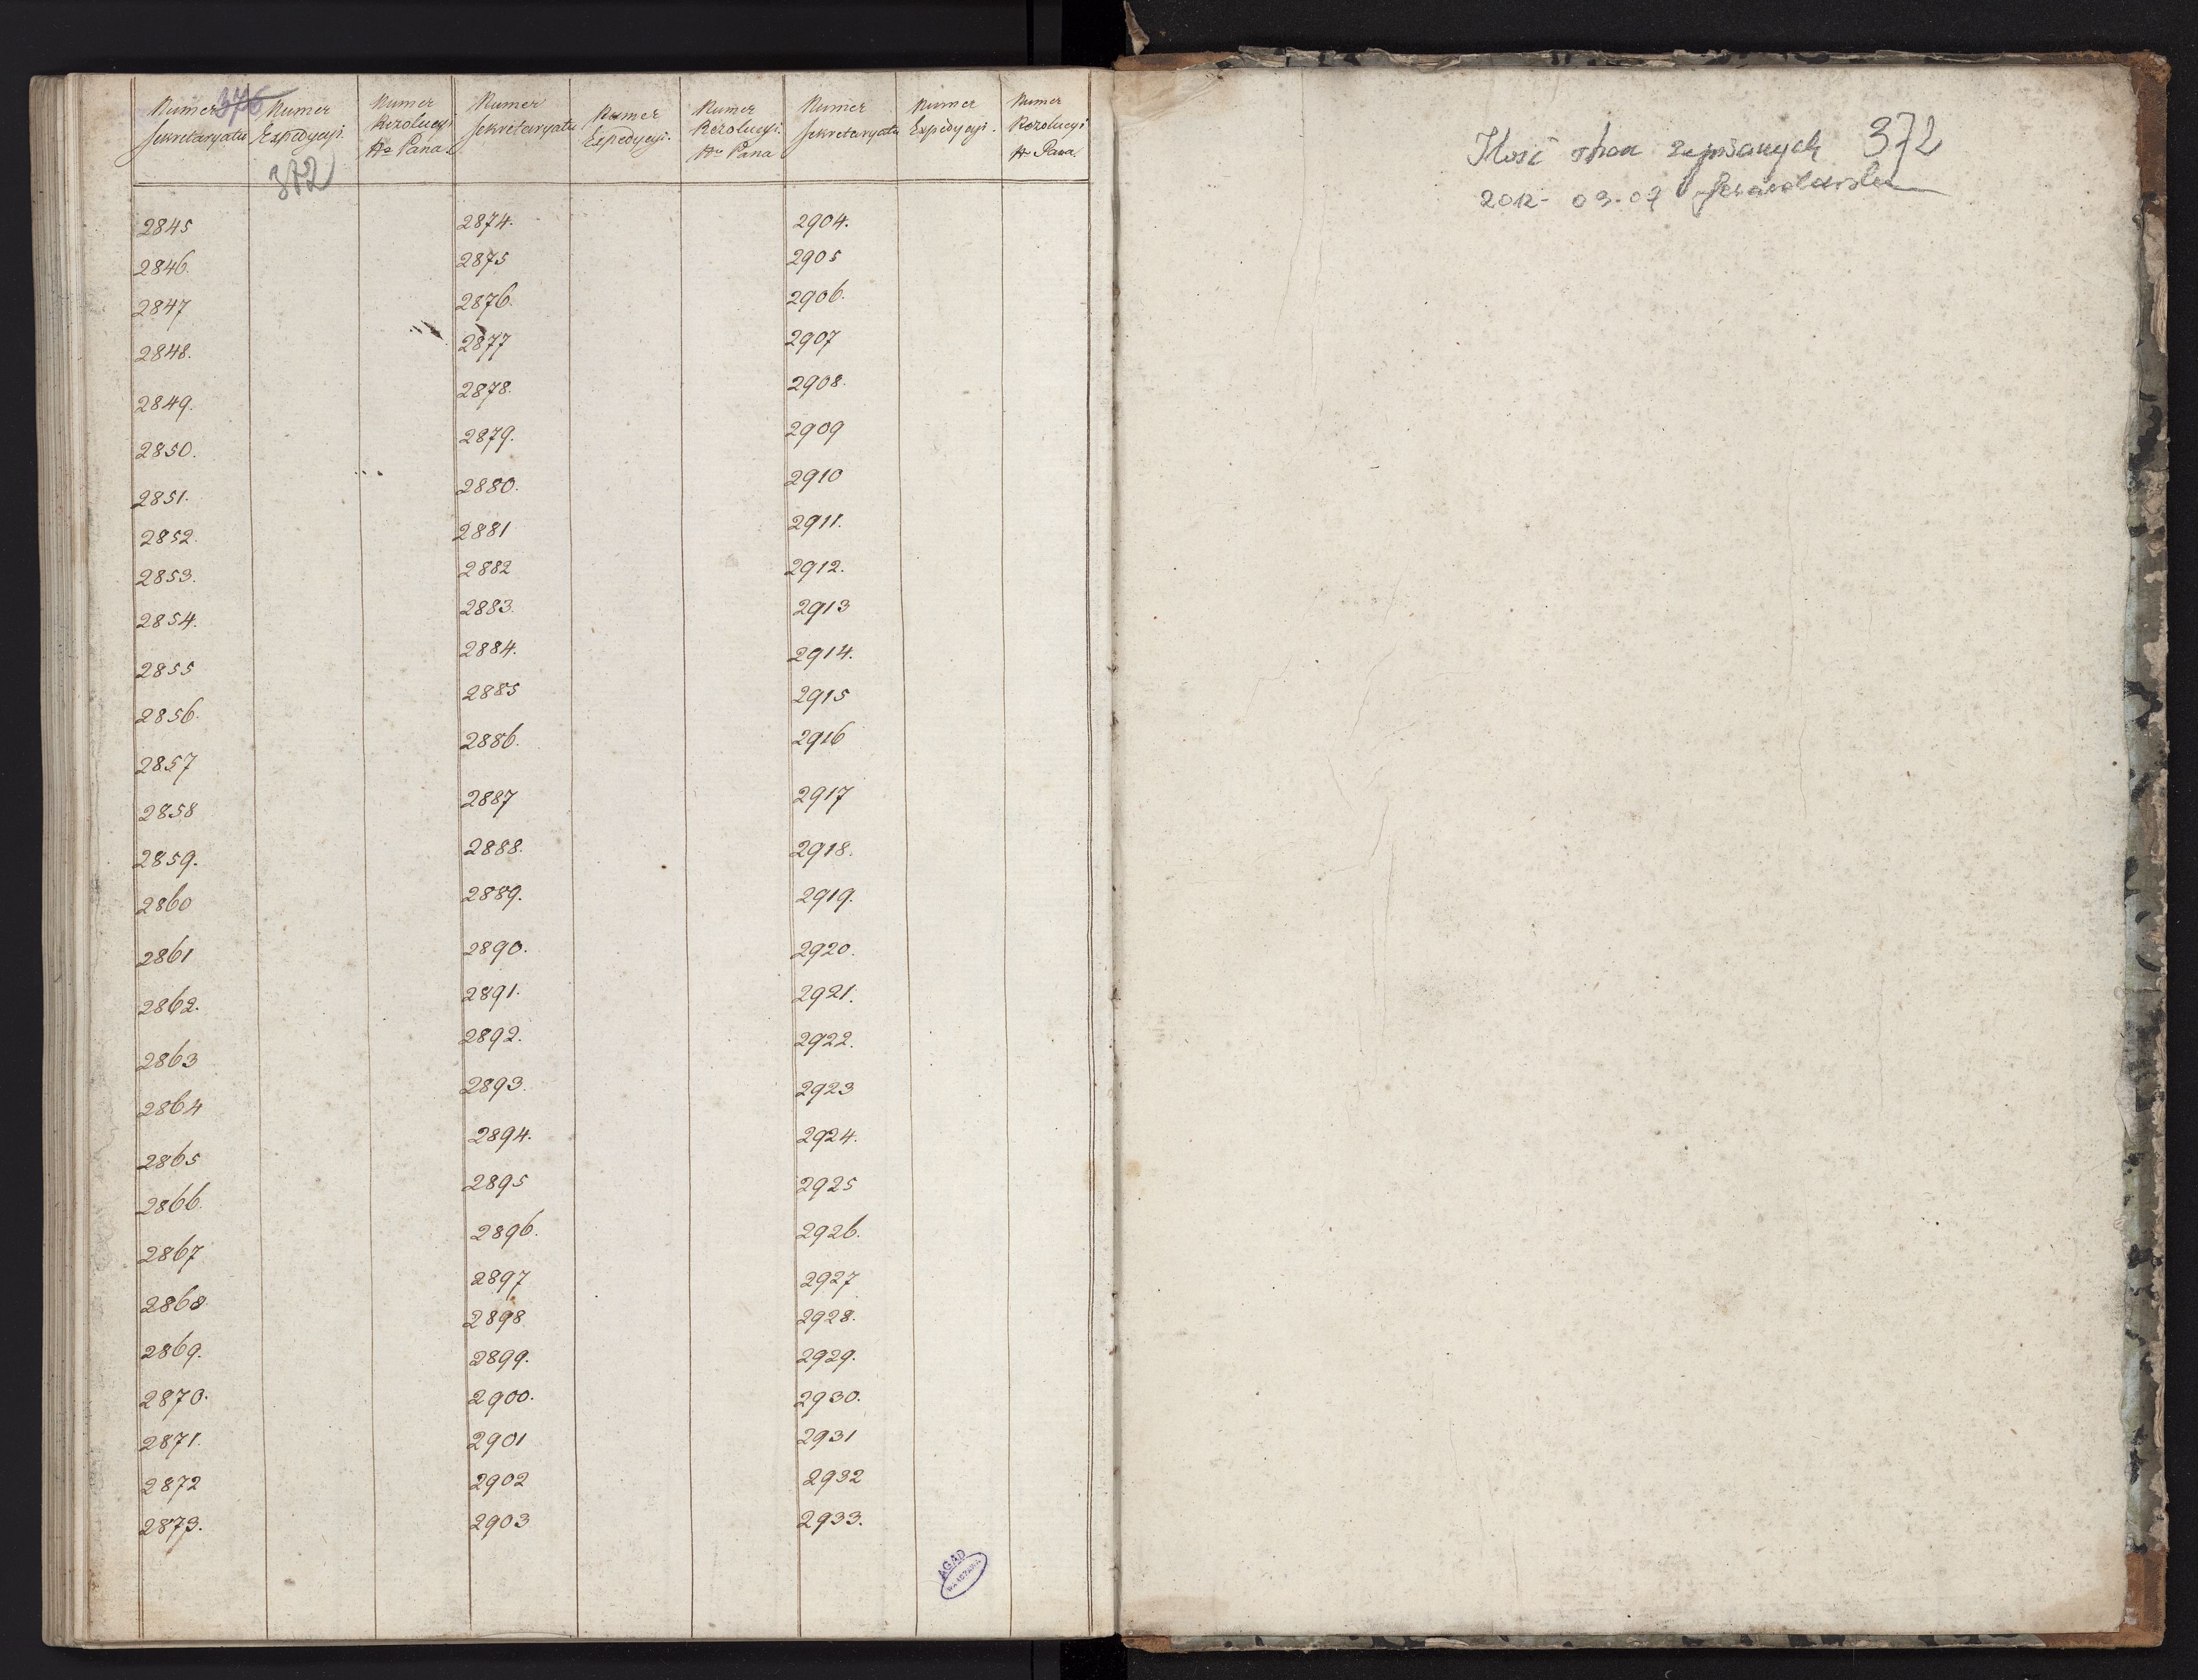 376
Numer Sekretaryatu | Numer Expedycyi. | Numer Rezolucyi Kr Pana | Numer Sekretaryatu | Numer Expedycyi. | Numer Rezolucyi. Kr Pana | Numer Sekretaryatu | Numer Expedycyi. | Numer Rezolucyi Kr Pana
372
2845 2874. 2904.
2846. 2875 2905
2847 2876. 2906.
2848. 2877 2907
2849. 2878. 2908.
2850. 2879. 2909
2851. 2880. 2910
2852. 2881 2911.
2853. 2882 2912.
2854. 2883. 2913
2855 2884. 2914.
2856. 2885 2915
2857 2886. 2916
2858 2887 2917
2859. 2888. 2918.
2860 2889. 2919.
2861 2890. 2920.
2862. 2891. 2921.
2863 2892. 2922.
2864 2893. 2923
2865 2894. 2924.
2866. 2895 2925
2867 2896. 2926.
2868 2897 2927
2869. 2898 2928.
2870. 2899. 2929.
2871. 2900. 2930.
2872 2901 2931
2873. 2902 2932
2903 2933.
AGAD
WARSZAWA
Ilość stron zapisanych 372
2012-09-07